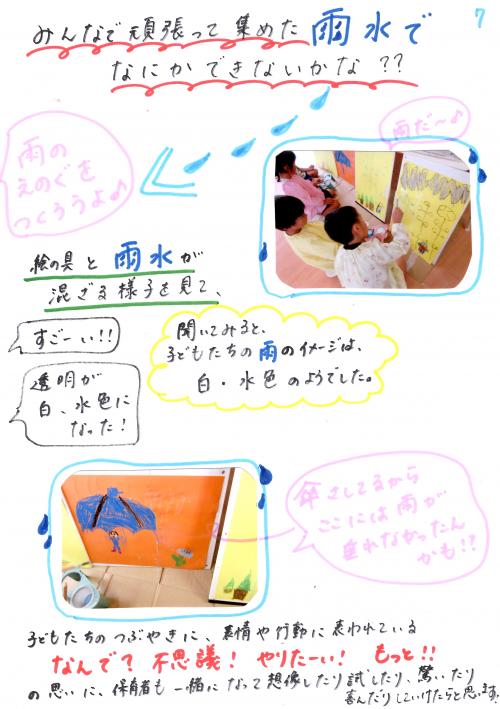 7
みんなで頑張って集めた雨水で
なにかできないかな??
雨だ〜♪
雨の
えのぐを
つくろうよ♪
絵の具と雨水が
混ざる様子を見て、
すごーい!!
透明が
白、水色に
なった!
聞いてみると、
子どもたちの雨のイメージは、
白・水色のようでした。
傘さしてるから
ここには雨が
垂れなかったん
かも!!
子どもたちのつぶやきに、表情や行動に表われている
なんで?不思議!やりたーい!もっと!!
の思いに、保育者も一緒になって想像したり試したり、驚いたり
喜んだりしていけたらと思います。